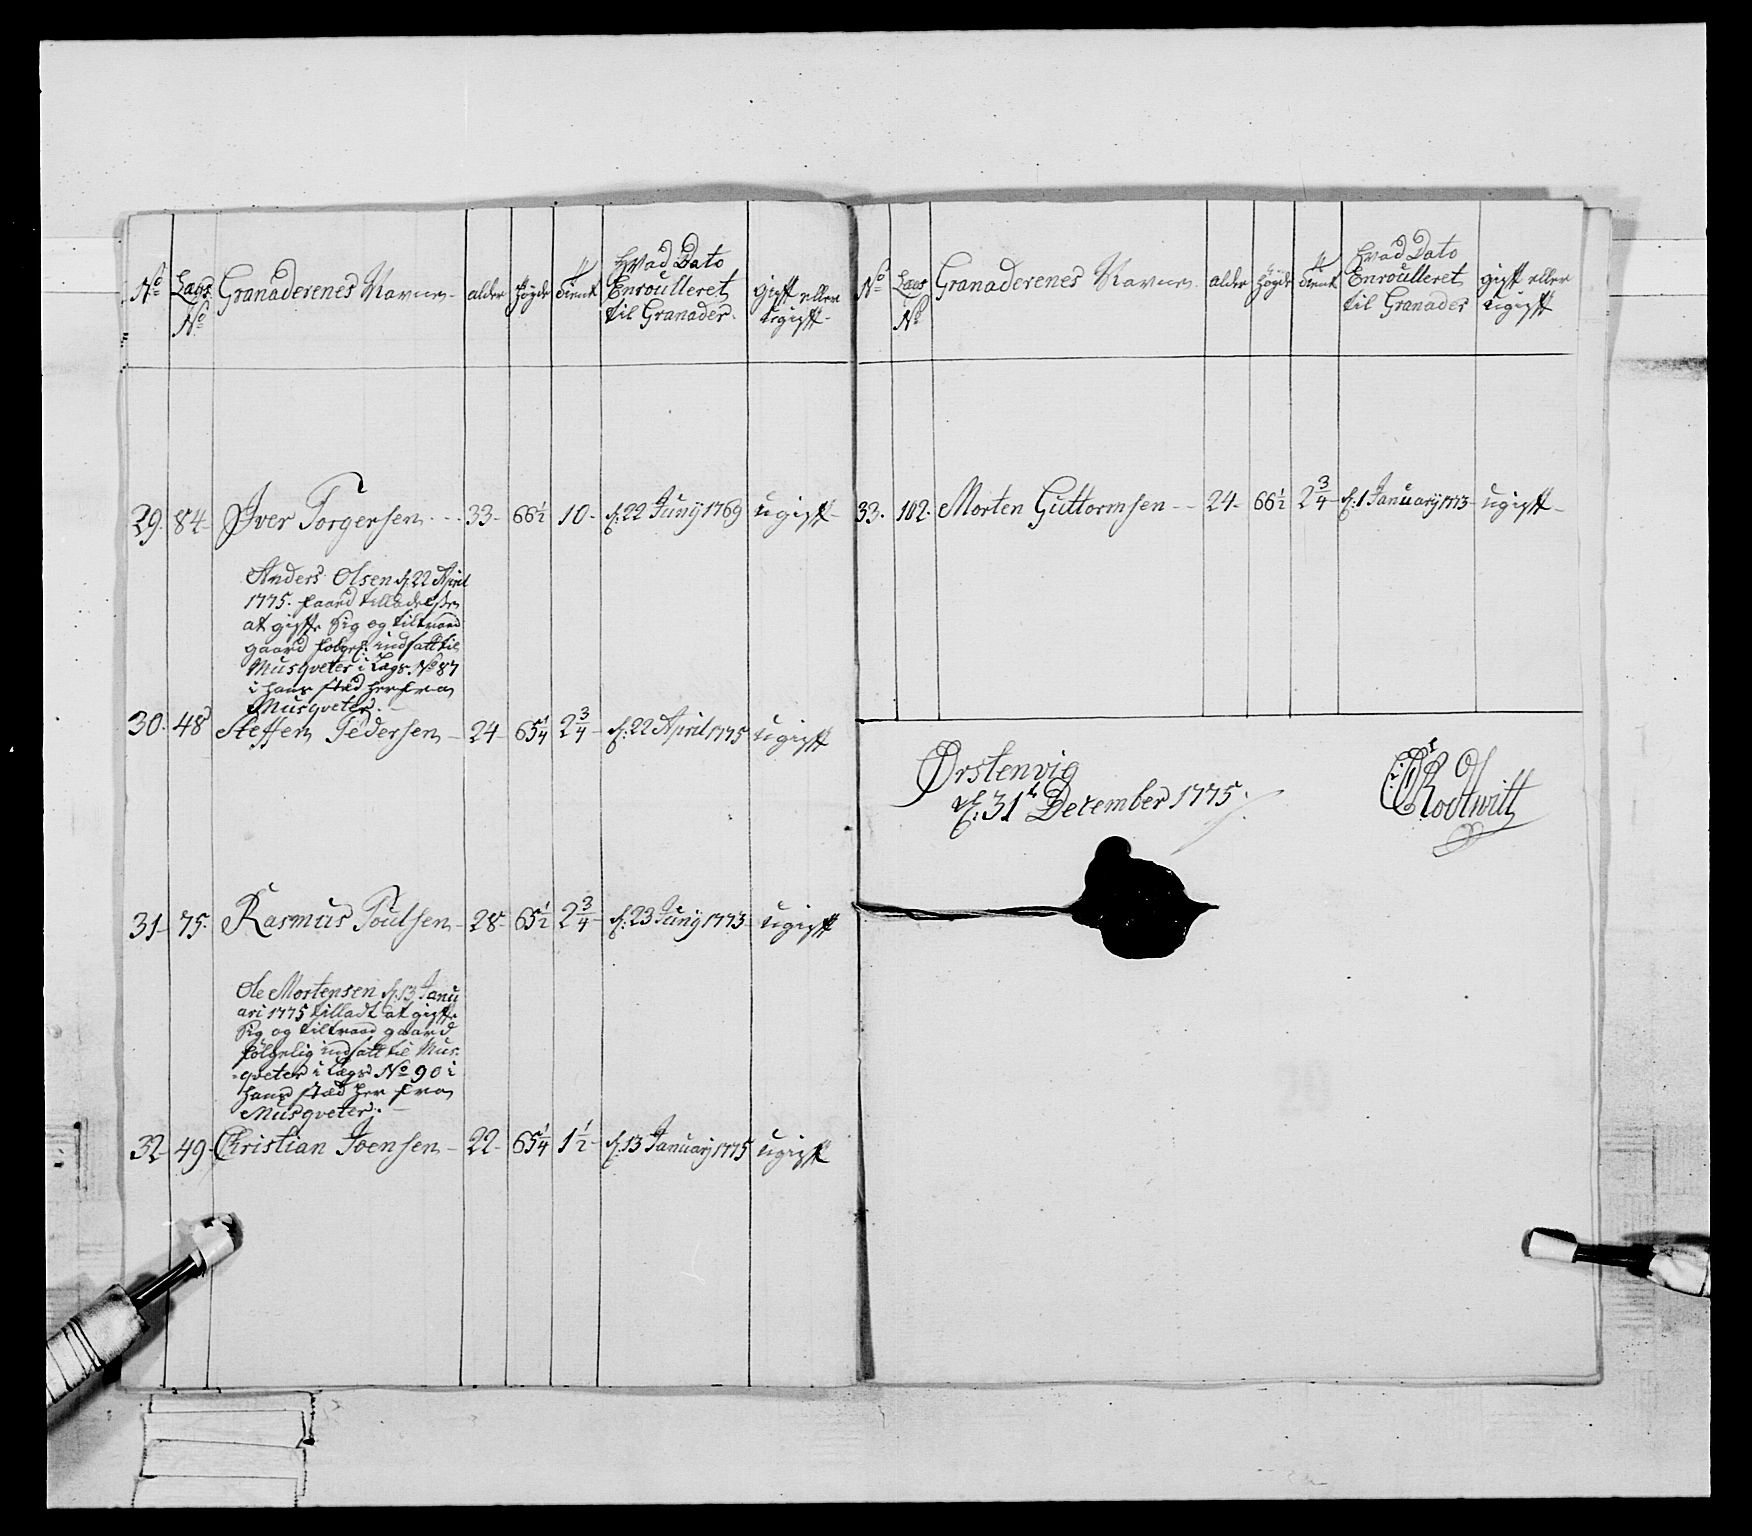 No Lægs No Granaderenes Navne. alder höyde tient Hvad Dato Enroulleret til Granader. gift eller ugift.
29. 84. Iver Torgersen 33. 66½ 10. d. 22 Junÿ 1769 ugift.
Anders Olsen d. 22 April
1775. faaed tilladelse
at gifte sig og tiltræde
gaard følgel. indsatt til
Musqveter i Lægs. No 87
i hans stæd her fra
Musqveter.
30. 48 Steffen Pedersen 24 65¼ 2¾ d. 22 April 1775 ugift
31. 75. Rasmus Poulsen 28. 65½ 2¾ d. 23 Junÿ 1773 ugift
Ole Mortensen d. 13 Janu
ari 1775 tilladt at gifte
sig og tiltræde gaard
følgelig indsatt til Mus-
qveter i Lægs No 90 i
hans stæd her fra
Musqveter.
32. 49. Christian Joensen 22. 65¼ 1½ d. 13 Januarÿ 1775 ugift
No Lægs No Granaderenes Navne alder höyde tient Hvad Dato Enroulleret til Granader gift eller ugift
33. 102. Morten Guttormsen 24. 66½ 2¾ d. 1 Januarÿ 1773 ugift
Ørstenvig
d. 31t December 1775.
Rodtwitt